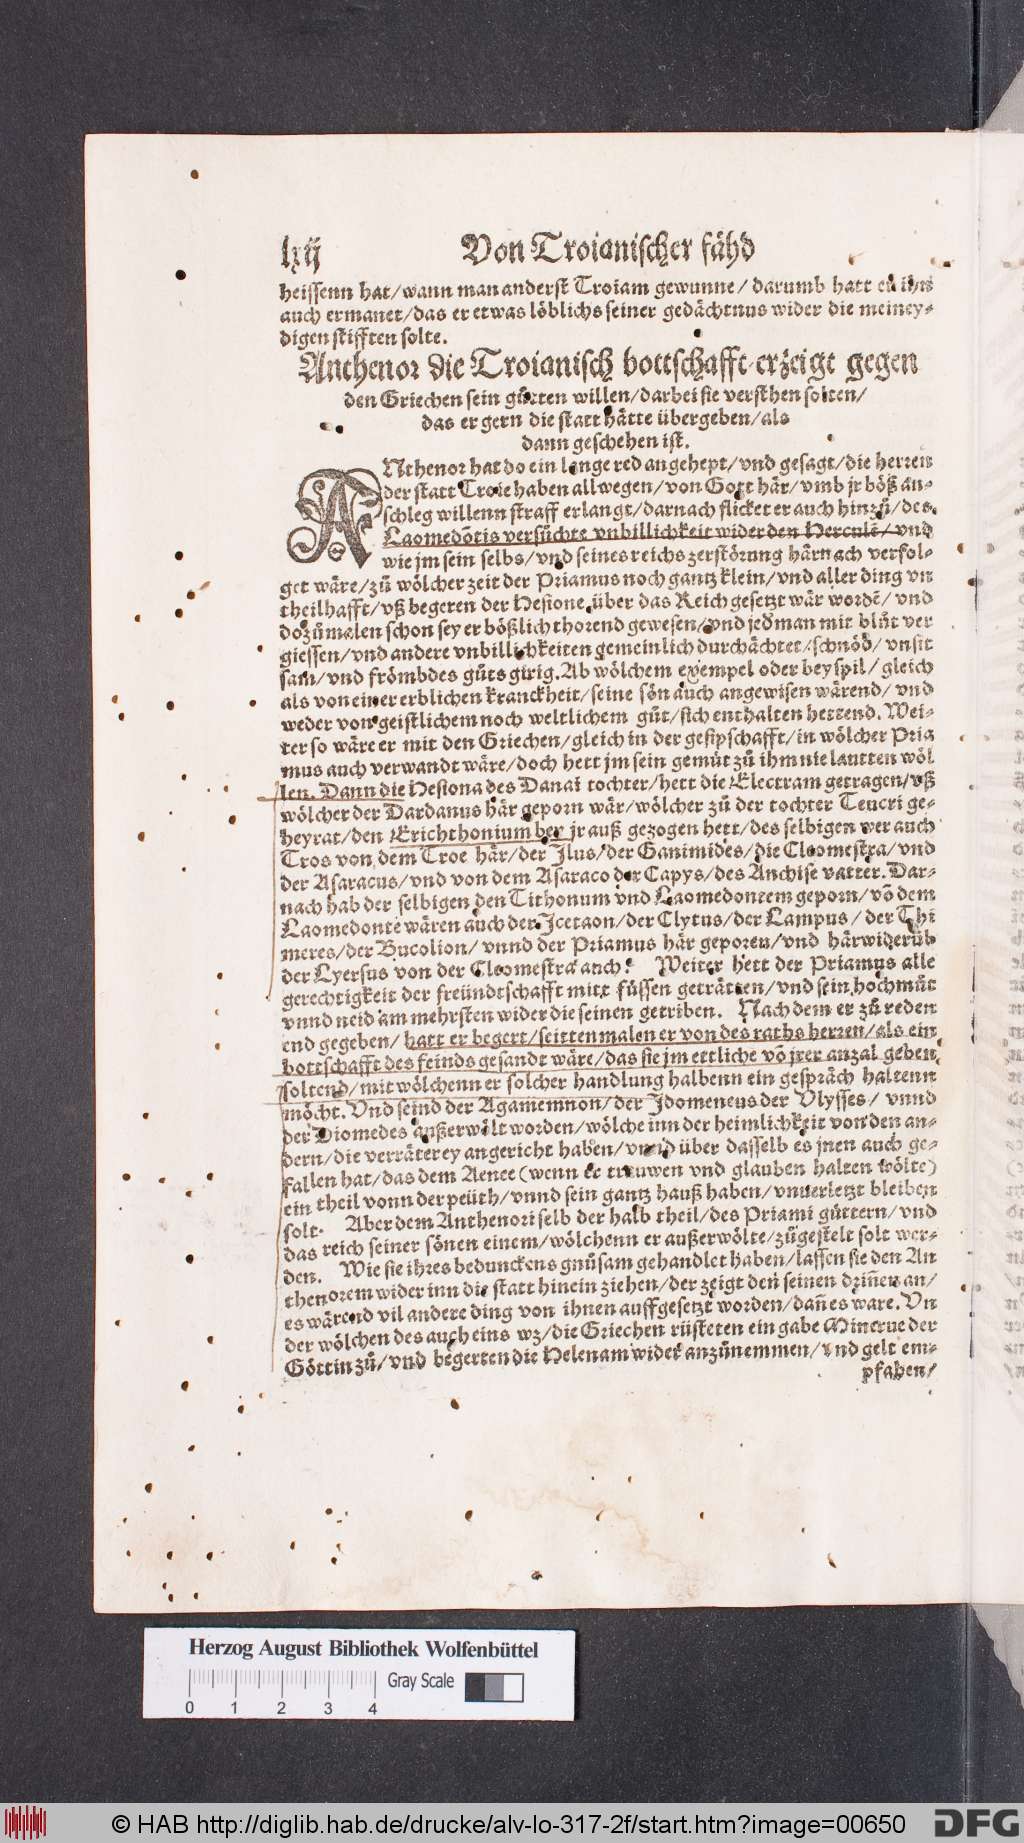 lxij Von Troianischer fähd
heissenn hat/wann man anderst Troiam gewunne/ darumb hatt er ihn
auch ermanet/das er etwas löblichs seiner gedächtnus wider die meiney-
digen stifften solte.
Anthenor die Troianisch bottschafft erzeigt gegen
den Griechen sein gůtten willen/darbei sie versthen solten/
das er gern die statt hätte übergeben/als
dann geschehen ist.
ANthenor hat do ein lange red angehept/vnd gesagt/die herren
der statt Troie haben allwegen/von Gott här/vmb jr böß an-
schleg willenn straff erlangt/darnach flicket er auch hinzů/des
Laomedōtis versůchte vnbillichkeit wider den Herculē/vnd
wie jm sein selbs/vnd seines reichs zerstörung härnach verfol-
get wäre/zů wölcher zeit der Priamus noch gantz klein/vnd aller ding vn
theilhafft/vß begeren der Hesione über das Reich gesetzt wär wordē/vnd
dozůmalen schon sey er bößlich thorend gewesen/vnd jedman mit blůt ver
giessen/vnd andere vnbillichkeiten gemeinlich durchächtet/schnöd/vnsit
sam/vnd frömbdes gůts girig. Ab wölchem exempel oder beyspil/gleich
als von einer erblichen kranckheit/seine sön auch angewisen wärend/vnd
weder von geistlichem noch weltlichem gůt/sich enthalten hettend. Wei-
ter so wäre er mit den Griechen/gleich in der gesipschafft/in wölcher Pria
mus auch verwandt wäre/doch hett jm sein gemůt zů ihm nie lautten wöl
len. Dann die Hesiona des Danai tochter/hett die Electram getragen/vß
wölcher der Dardanus här geporn wär/wölcher zů der tochter Teucri ge-
heyrat/den Erichthonium bey jr auß gezogen hett/des selbigen wer auch
Tros von dem Troe här/der Ilus/der Ganimides/die Cleomestra/vnd
der Asaracus/vnd von dem Asaraco der Capys/des Anchise vatter. Dar-
nach hab der selbigen den Tithonum vnd Laomedontem geporn/vō dem
Laomedonte wären auch der Icetaon/der Clytus/der Lampus/ der Thi
meres/der Bucolion/ vnnd der Priamus här geporen/vnd härwiderüb
der Lyersus von der Cleomestra auch. Weiter hett der Priamus alle
gerechtigkeit der freündtschafft mitt füssen geträtten/vnd sein hochmůt
vnnd neid am mehrsten wider die seinen getriben. Nach dem er zů reden
end gegeben/hatt er begert/seittenmalen er von des raths herren/als ein
bottschafft des feinds gesandt wäre/das sie jm ettliche vō jrer anzal geben
soltend/mit wölchenn er solcher handlung halbenn ein gespräch haltenn
möcht. Vnd seind der Agamemnon/der Idomeneus der Vlysses/ vnnd
der Diomedes außerwölt worden/wölche inn der heimlichkeit von den an-
dern/die verräterey angericht haben/vnnd über dasselb es jnen auch ge-
fallen hat/das dem Aenee (wenn er trauwen vnd glauben halten wölte)
ein theil vonn der peüth/vnnd sein gantz hauß haben/vnuerletzt bleiben
solt. Aber dem Anthenori selb der halb theil/des Priami güttern/vnd
das reich seiner sönen einem/wölchenn er außerwölte/zůgestelt solt wer-
den. Wie sie ihres bedunckens gnůsam gehandlet haben/lassen sie den An
thenorem wider inn die statt hinein ziehen/der zeigt den seinen driñen an/
es wärend vil andere ding von ihnen auffgesetzt worden/dañ es ware. Vn
der wölchen des auch eins wz/die Griechen rüsteten ein gabe Minerue der
Göttin zů/vnd begerten die Helenam wider anzůnemmen/vnd gelt em-
pfahen/
Herzog August Bibliothek Wolfenbüttel
Gray Scale
0 1 2 3 4
© HAB http://diglib.hab.de/drucke/alv-lo-317-2f/start.htm?image=00650 DFG